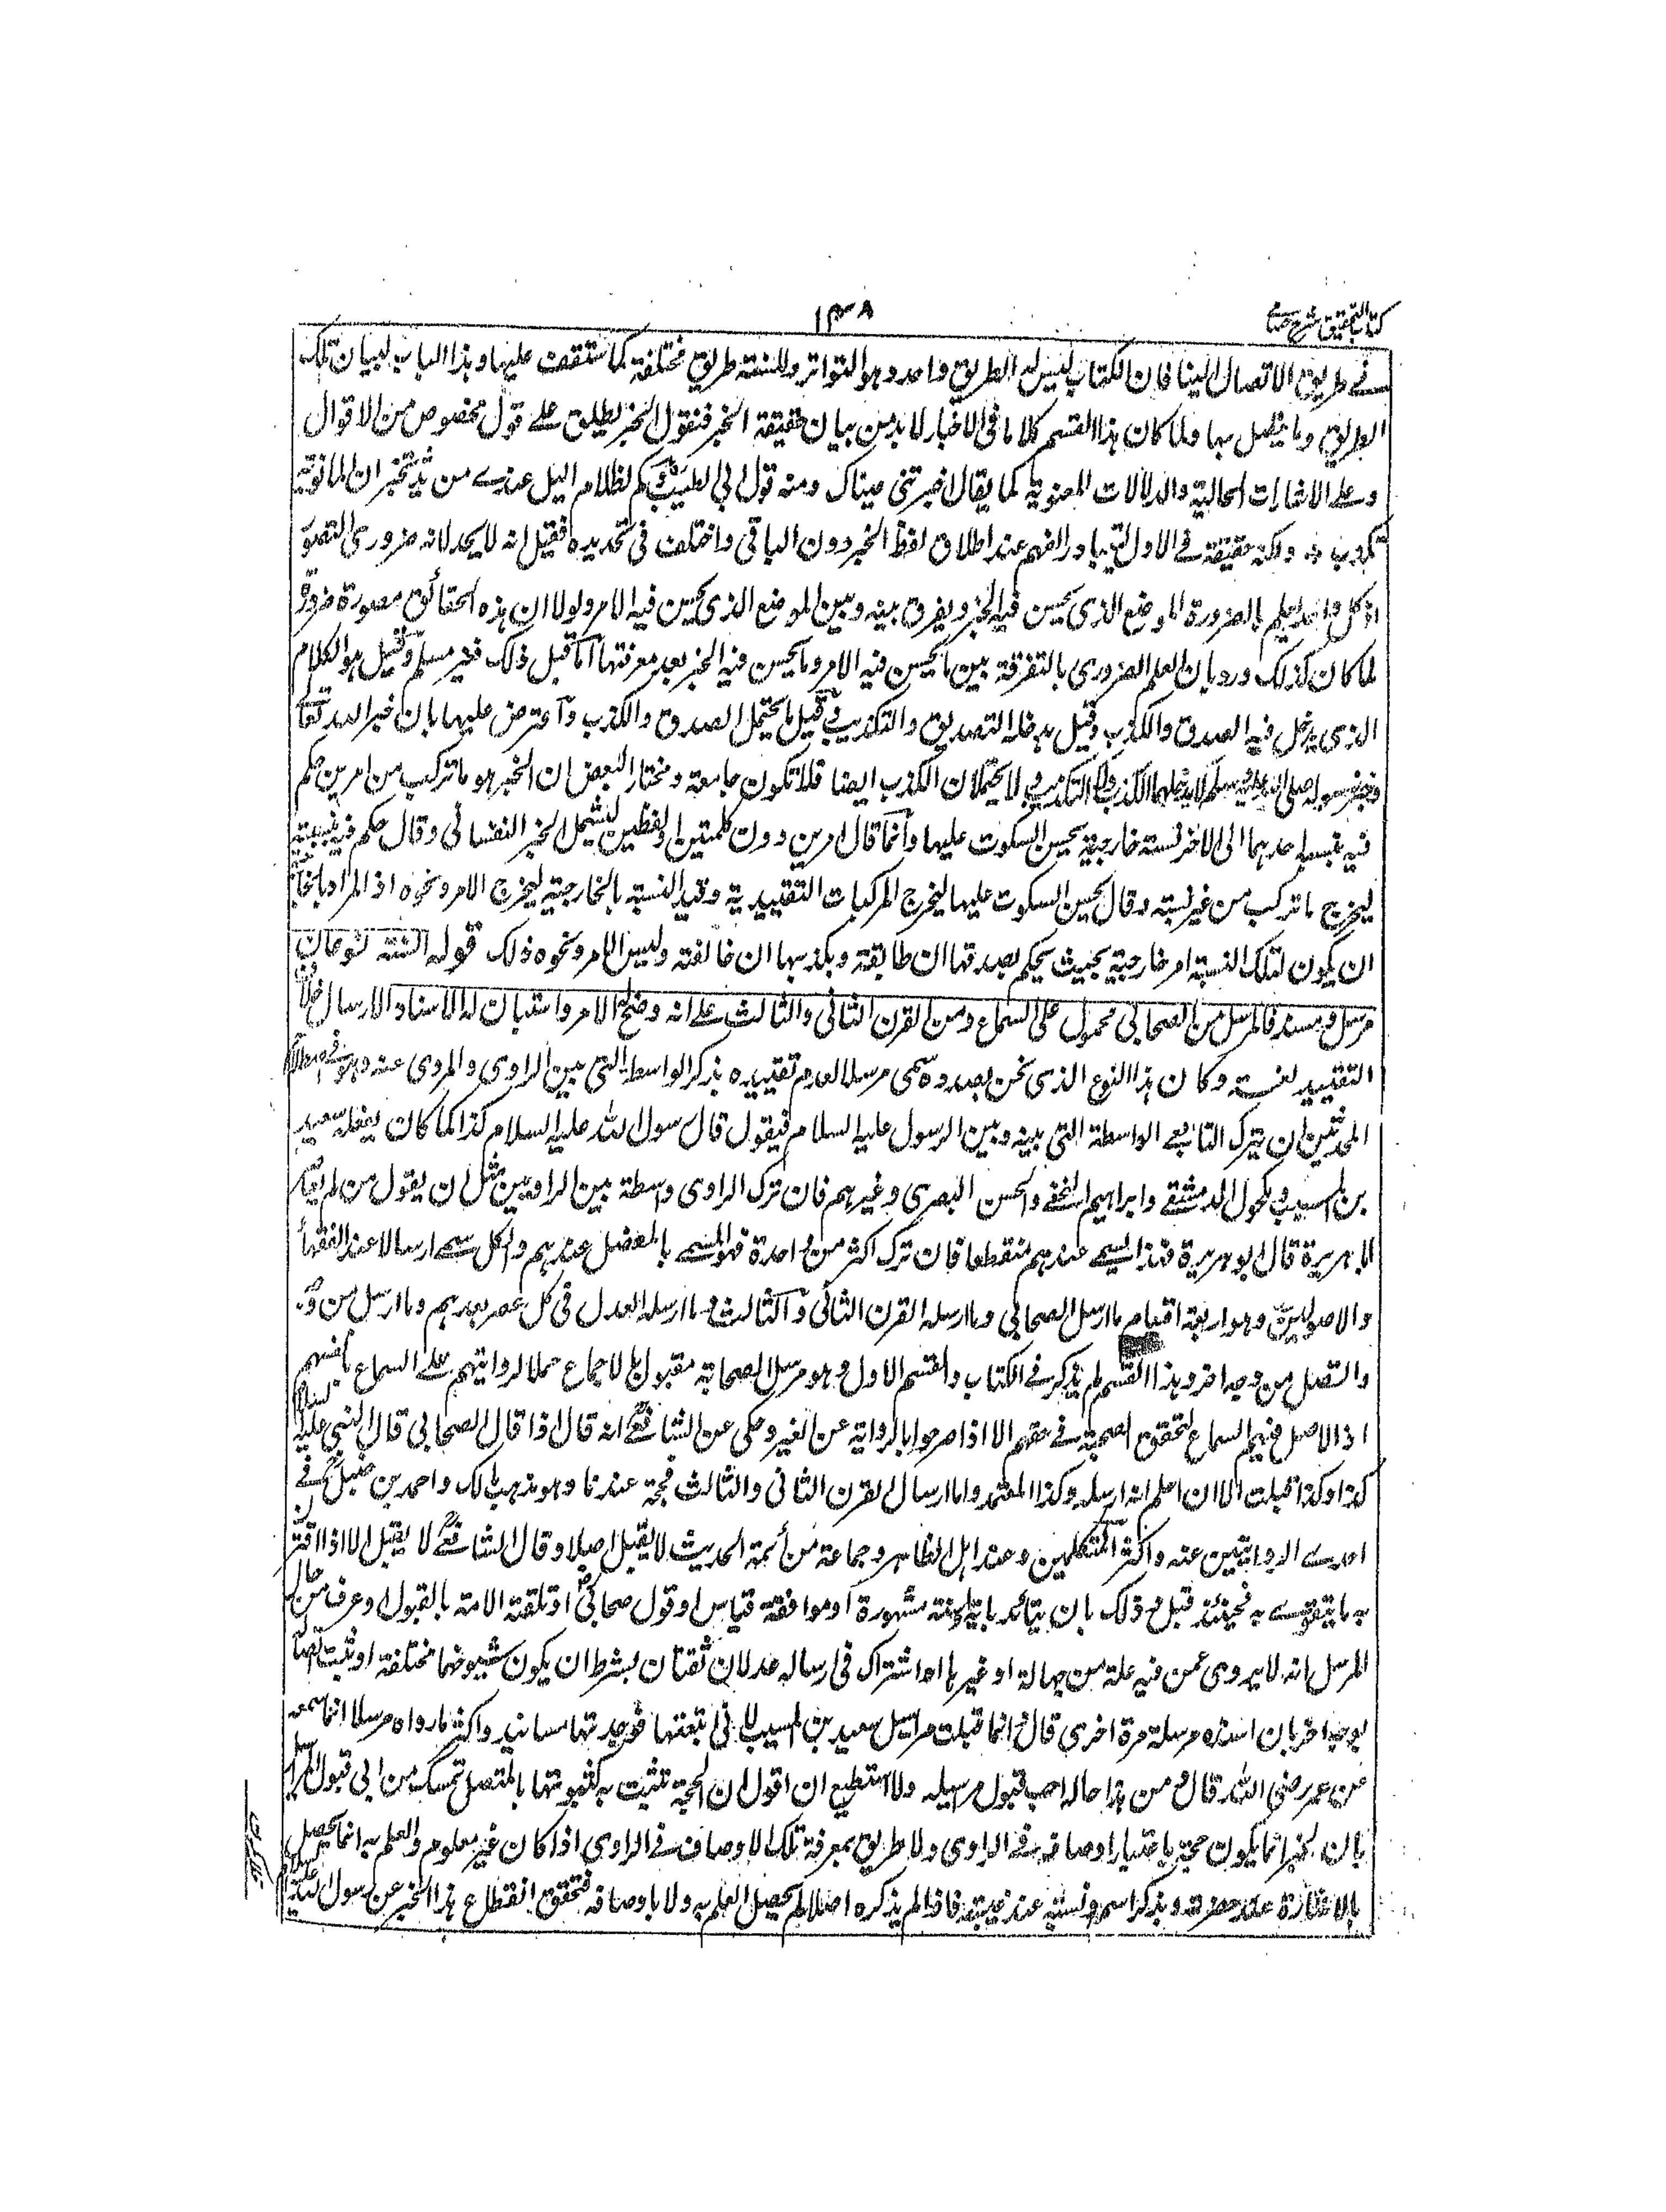 كتاب التحقيق شرح حسامى
١٣٨
فے طريق الاتصال الينا فان الكتاب ليس له الا طريق واحد وهو التواتر وللسنة طريق مختلفة كما ستقف عليها وهذا الباب لبيان تلك
الطريق وما يتصل بها ولما كان هذا القسم كلاما فى الاخبار لا بد من بيان حقيقة الخبر فنقول الخبر يطلق علے قول مخصوص من الاقوال
وعلے الاشارات الحالية والدلالات المعنوية كما يقال اخبرتنى عيناك ومنه قول ابى الطيب وكم لظلام اليل عندے من يد تخبر ان المانوية
تكذب ٭ ولكنه حقيقة فے الاول لتبادر الفهم عند اطلاق لفظ الخبر دون الباقى واختلف فى تحديده فقيل انه لا يحد لانه ضرورى التصور
اذ كل واحد يعلم بالضرورة الموضع الذى يحسن فيه الخبر ويفرق بينه وبين الموضع الذى يحسن فيه الامر ولولا ان هذه الحقائق متصورة ضرورة
لما كان كذلك ورد بان العلم الضرورى بالتفرقة بين ما يحسن فيه الامر وما يحسن فيه الخبر بعد معرفتها اما قبل ذلك فغير مسلم وقيل هو الكلام
الذى يدخل فيه الصدق والكذب وقيل يدخله التصديق والتكذيب وقيل ما يحتمل الصدق والكذب واعترض عليها بان خبر الله تعالى
وخبر رسوله صلى الله عليه وسلم لا يدخلهما الكذب ولا التكذيب ولا يحتملان الكذب ايضا فلا تكون جامعة ومختار البعض ان الخبر هو ما تركب من امرين حكم
فيه بنسبة احدهما الى الاخر نسبة خارجية يحسن السكوت عليها وانما قال امرين دون كلمتين او لفظين ليشمل الخبر النفسانى وقال حكم فيه بنسبة
ليخرج ما تركب من غير نسبة وقال يحسن السكوت عليها ليخرج المركبات التقييدية وقيد النسبة بالخارجية ليخرج الامر ونحوه اذ المراد بالخارجية
ان يكون لتلك النسبة امر خارجية بحيث يحكم بصدقها ان طابقته وبكذبها ان خالفته وليس للامر ونحوه ذلك قوله السنة نوعان
مرسل ومسند فالمرسل من الصحابى محمول على السماع ومن القرن الثانى والثالث علے انه وضح له الامر واستبان له الاسناد الارسال خلاف
التقييد لغة وكان هذا النوع الذى نحن بصدده سمى مرسلا لعدم تقييده بذكر الواسطة التى بين الراوى والمروى عنه وهو فے اصطلاح
المحدثين ان يترك التابعے الواسطة التى بينه وبين الرسول عليه السلام فيقول قال رسول الله عليه السلام كذا كما كان يفعله سعيد
بن المسيب ومكحول الدمشقے وابراهيم النخعے والحسن البصرى وغيرهم فان ترك الراوى واسطة بين الراويين مثل ان يقول من لم يعاصر
ابا هريرة قال ابو هريرة فهذا يسمے عندهم منقطعا فان ترك اكثر من واحدة فهو المسمے بالمعضل عندهم والكل يسمے ارسالا عند الفقهاء
والاصوليين وهو اربعة اقسام ما ارسل الصحابى وما ارسله القرن الثانى والثالث وما ارسله العدل فى كل عصر بعدهم وما ارسل من وجه
واتصل من وجه اخر وهذا القسم لم يذكر فے الكتاب والقسم الاول وهو مرسل الصحابة مقبول بالاجماع حملا لروايتهم علے السماع بانفسهم
اذ الاصل فيهم السماع لتحقق الصحبة فے حقهم الا اذا صرحوا بالرواية عن الغير وحكى عن الشافعےؒ انه قال اذا قال الصحابى قال النبى عليه السلام
كذا وكذا قبلت الا ان اعلم انه ارسله وكذا المعتمد واما ارسال القرن الثانى والثالث فحجة عندنا وهو مذهب مالك واحمد بن حنبلؒ فے
احدے الروايتين عنه واكثر المتكلمين وعند اهل الظاهر وجماعة من أئمة الحديث لا يقبل اصلا وقال الشافعےؒ لا يقبل الا اذا اقترن
به ما يتقوے به فحينئذ قبل وذلك بان يتائد باية او سنة مشهورة او موافقة قياس او قول صحابى او تلقته الامة بالقبول او عرف من حال
المرسل انه لا يروى عمن فيه علة من جهالة او غيرها او اشترك فى ارساله عدلان ثقتان بشرط ان يكون شيوخهما مختلفة او ثبت اتصاله
بوجه اخر بان اسنده مرسله مرة اخرى قال وانما قبلت مراسيل سعيد بن المسيب لانى اتبعتها فوجدتها مسانيد واكثر ما رواه مرسلا انما سمعه
عن عمر رضى الله قال ومن هذا حاله احب قبول مرسيله ولا استطيع ان اقول ان الحجة تثبت به كثبوتها بالمتصل تمسك من ابى قبول المراسيل
بان الخبر انما يكون حجة باعتبار اوصاف فے الراوى ولا طريق لمعرفة تلك الاوصاف فے الراوى اذا كان غير معلوم والعلم به انما يحصل
بالاشارة عند حضرته وبذكر اسمه ونسبته عند غيبته فاذا لم يذكره اصلا لم يحصل العلم به ولا باوصافه فتحقق انقطاع هذا الخبر عن رسول الله عليه السلام